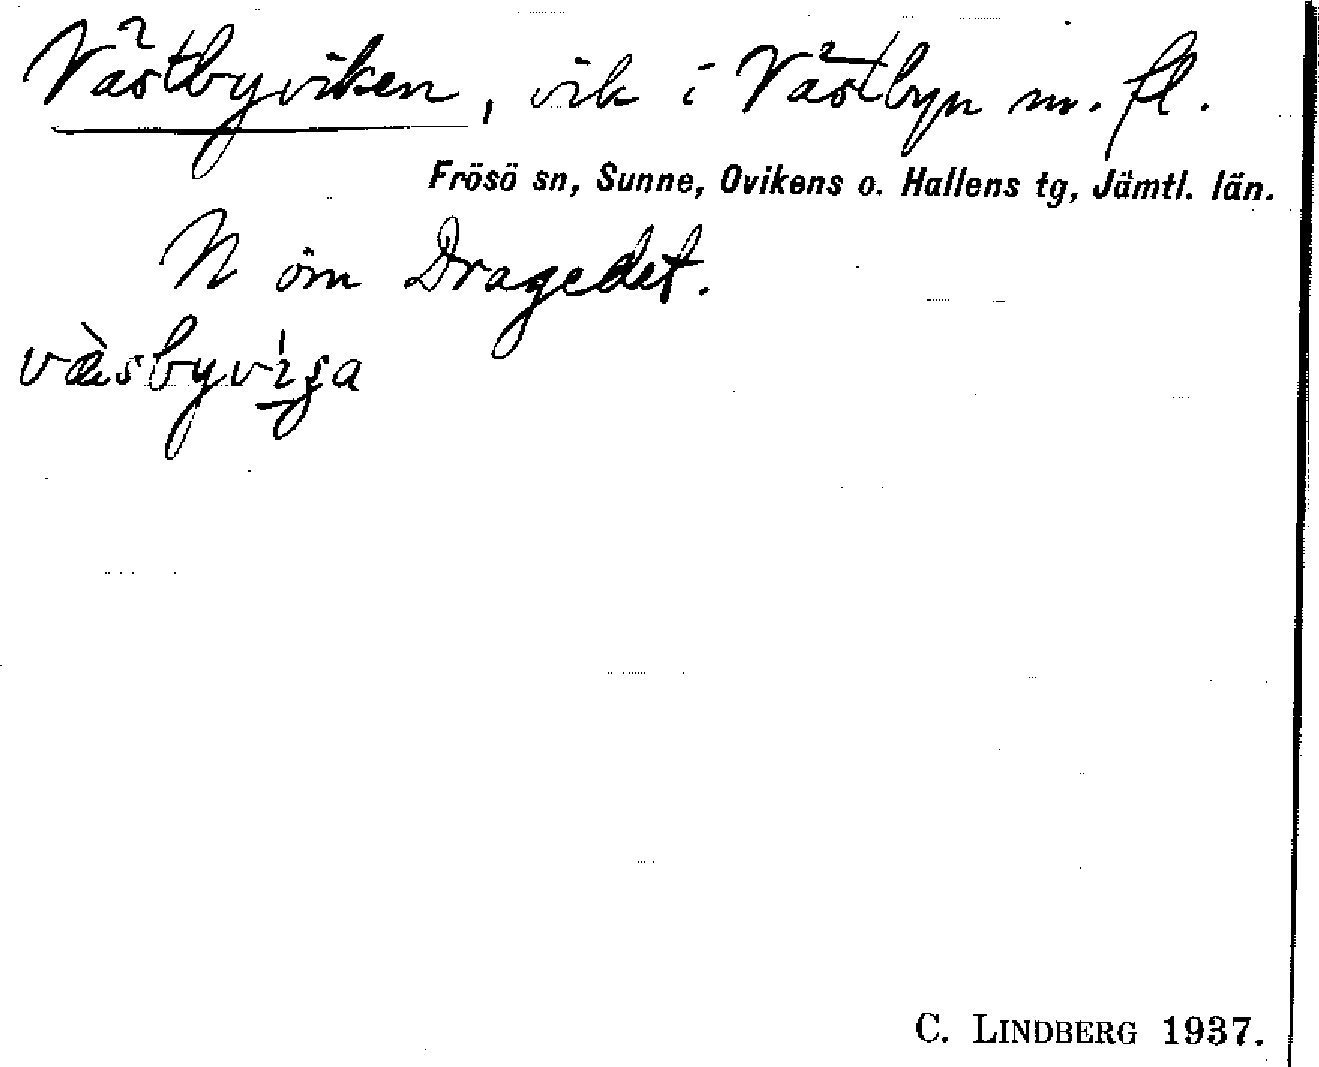 Västbyviken, vik i Västbyn m. fl.
Frösö sn, Sunne, Ovikens o. Hallens tg, Jämtl. län.
N om Dragedet.
C. LINDBERG 1937.